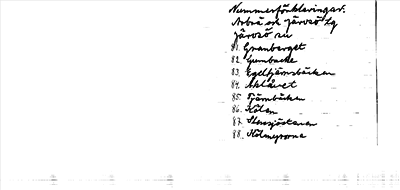 Nummerförklaringar.
Arbrå och Järvsö tg
Järvsö sn
81. Granberget
82. Gumbacke
83. Egeltjärnsbäcken
84. Acktåret
85. Tjärnbäcken
86. Kölen
87. Stensjöskaren
88. Kölmyrorna